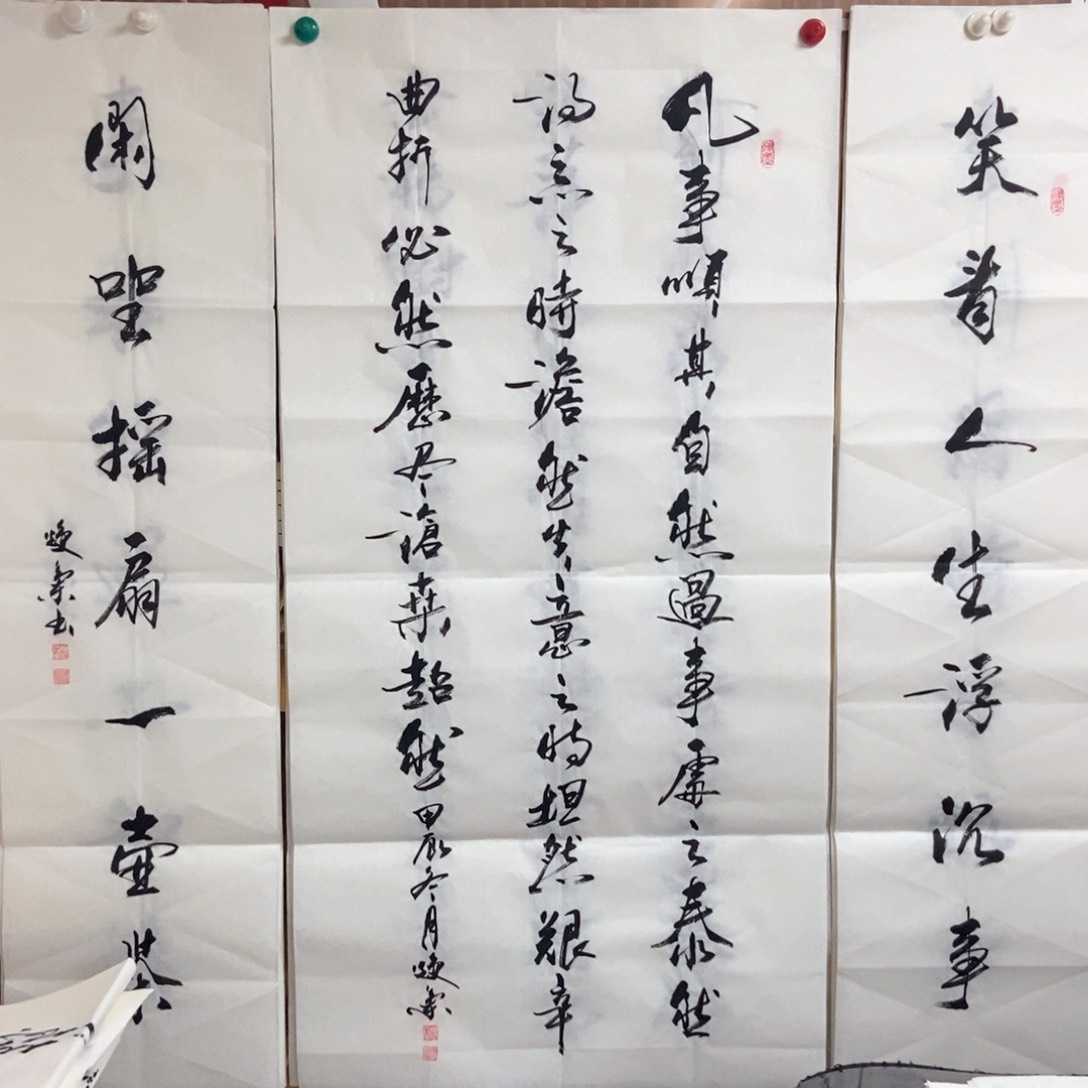 笑看人生浮沉事
凡事順其自然過事處之泰然
得意之時澹然失意之時坦然艱辛
曲折必然歷尽滄桑豁然甲辰冬月煥
閑坐摇扇一壺茶
煥书